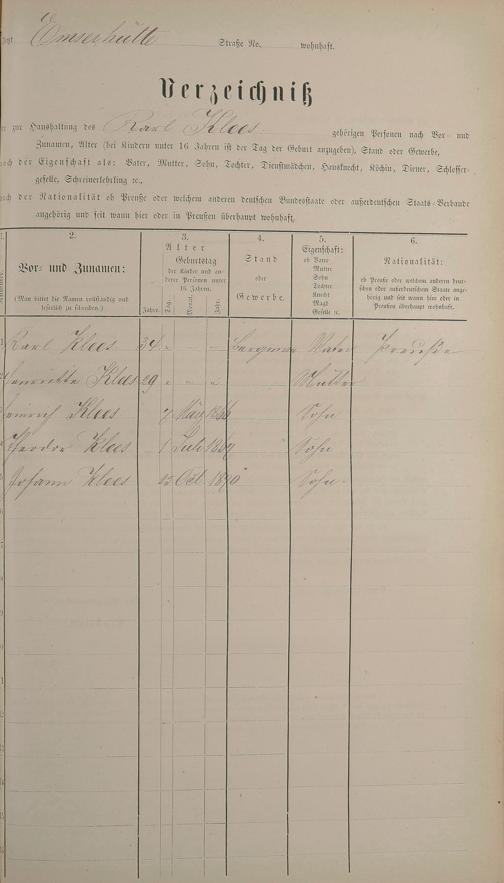 Emserhütte Straße No. wohnhaft.
Verzeichniß
zur Haushaltung des Karl Klees gehörigen Personen nach Vor- und
Zunamen, Alter (bei Kindern unter 16 Jahren ist der Tag der Geburt anzugeben), Stand oder Gewerbe,
nach der Eigenschaft als: Vater, Mutter, Sohn, Tochter, Dienstmädchen, Hausknecht, Köchin, Diener, Schlosser-
geselle, Schreinerlehrling ꝛc.,
nach der Nationalität ob Preuße oder welchem anderen deutschen Bundesstaate oder außerdeutschen Staats-Verbande
angehörig und seit wann hier oder in Preußen überhaupt wohnhaft.
2. 3. 4. 5. 6.
Vor- und Zunamen:
(Man bittet die Namen vollständig und
leserlich zu schreiben.)
Alter
Geburtstag
der Kinder und an-
derer Personen unter
16 Jahren.
Jahre. Tag. Monat. Jahr.
Stand
oder
Gewerbe.
Eigenschaft:
ob Vater
Mutter
Sohn
Tochter
Knecht
Magd
Geselle ꝛc.
Nationalität:
ob Preuße oder welchem anderen deut-
schen oder außerdeutschen Staate ange-
hörig und seit wann hier oder in
Preußen überhaupt wohnhaft.
Karl Klees 34 Bergmann Vater Preuße
Henriette Klees 29 Mutter
Heinrich Klees 7 May 1866 Sohn
Theodor Klees 1 Juli 1869 Sohn
Johann Klees Oct. 1870 Sohn